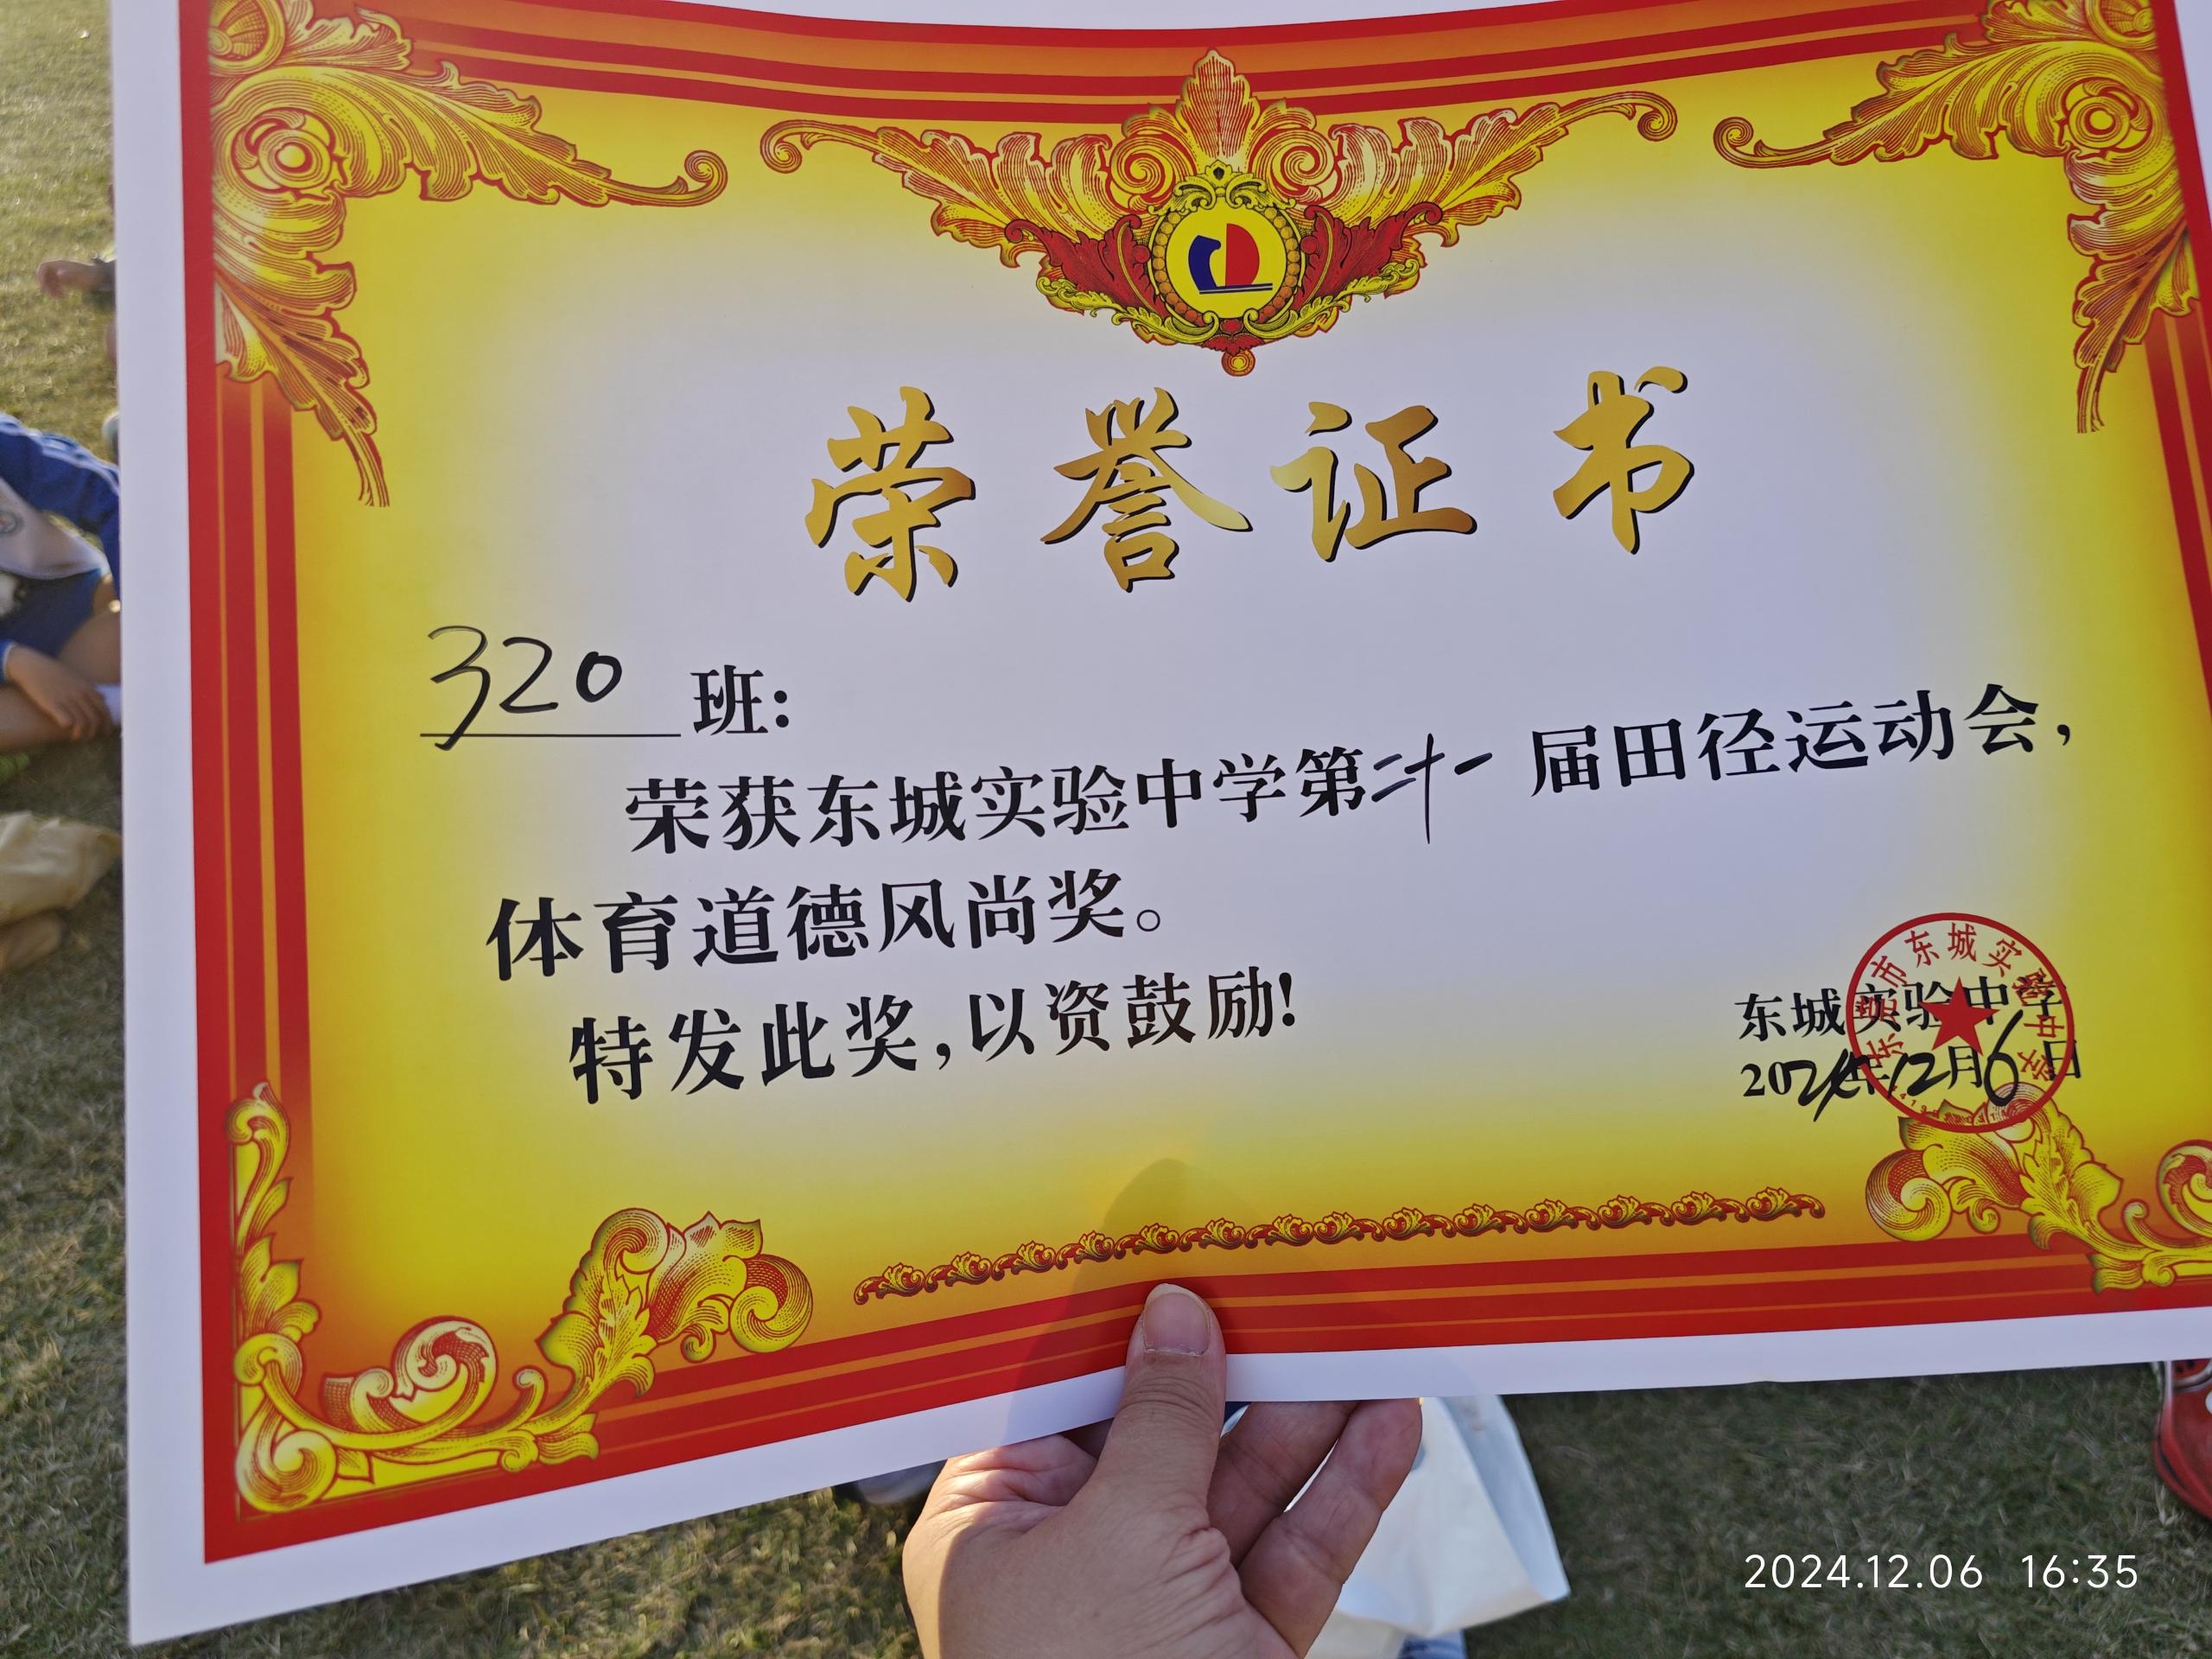 荣誉证书
320班:
荣获东城实验中学第二十一届田径运动会,
体育道德风尚奖。
特发此奖,以资鼓励!
东城实验中学
2024年12月6日
东莞市东城实验中学
2024.12.06 16:35